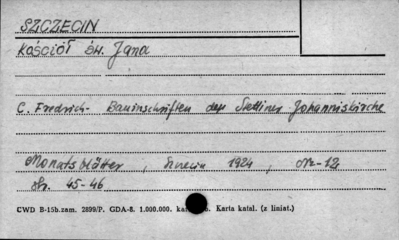 SZCZECIN
KOŚCIÓŁ ŚW. Jana
C. Fredrich - Bauinschriften der Stettiner Johanniskirche
Monatsblätter, Szczecin 1924, Nr-12
Str. 45-46
CWD B-15b.zam. 2899/P. GDA-8. 1.000.000. Karta katal. (z liniat.)